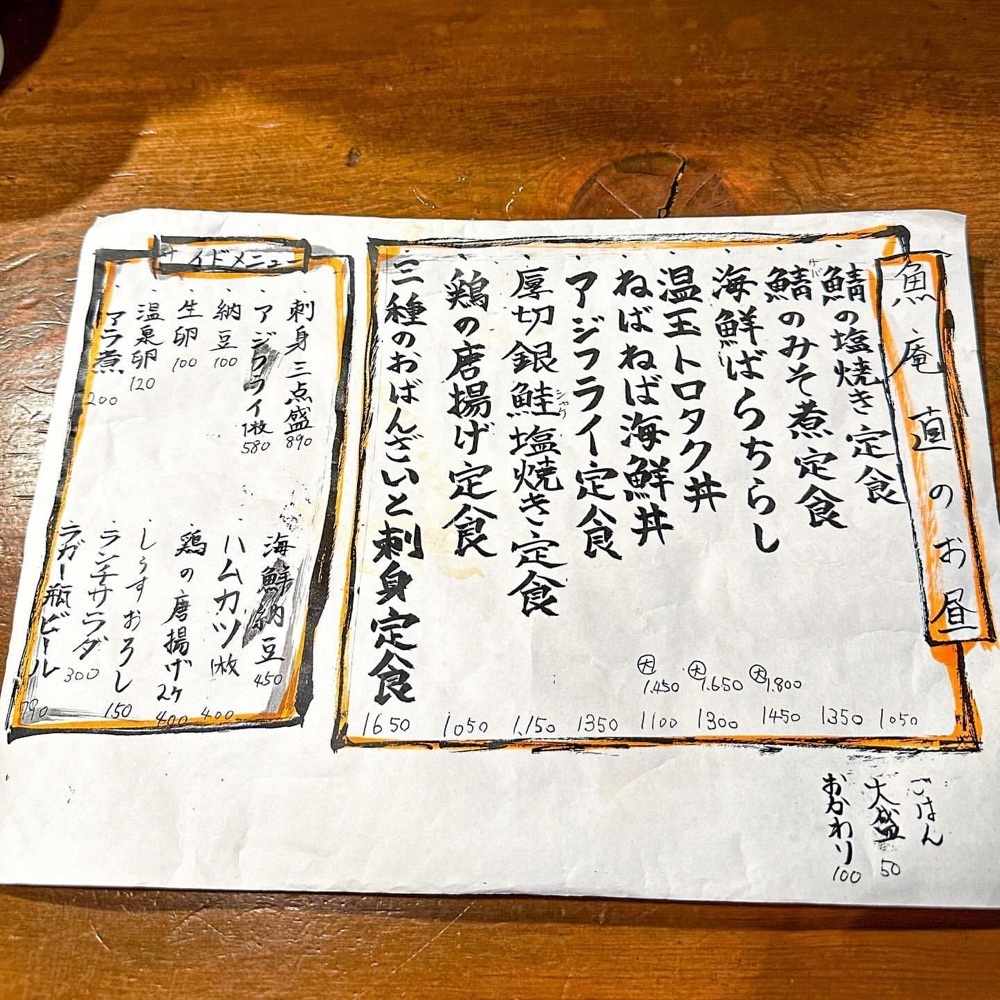 魚庵 直のお昼
・鯖の塩焼き定食 1050
・鯖のみそ煮定食 1350
サバ
・海鮮ばらちらし 1450
大 1.800
・温玉トロタク丼 1300
大 1.650
・ねばねば海鮮丼 1100
大 1.450
・アジフライ定食 1350
・厚切銀鮭塩焼き定食 1.150
シャケ
・鶏の唐揚げ定食 1050
・三種のおばんざいと刺身定食 1650
ごはん
大盛 50
おかわり 100
サイドメニュー
・刺身三点盛 890
・アジフライ 1枚 580
・納豆 100
・生卵 100
・温泉卵 120
・アラ煮 200
・海鮮納豆 450
・ハムカツ 1枚 400
・鶏の唐揚げ 2ケ 400
・しらすおろし 150
・ランチサラダ 300
・ラガー瓶ビール 790